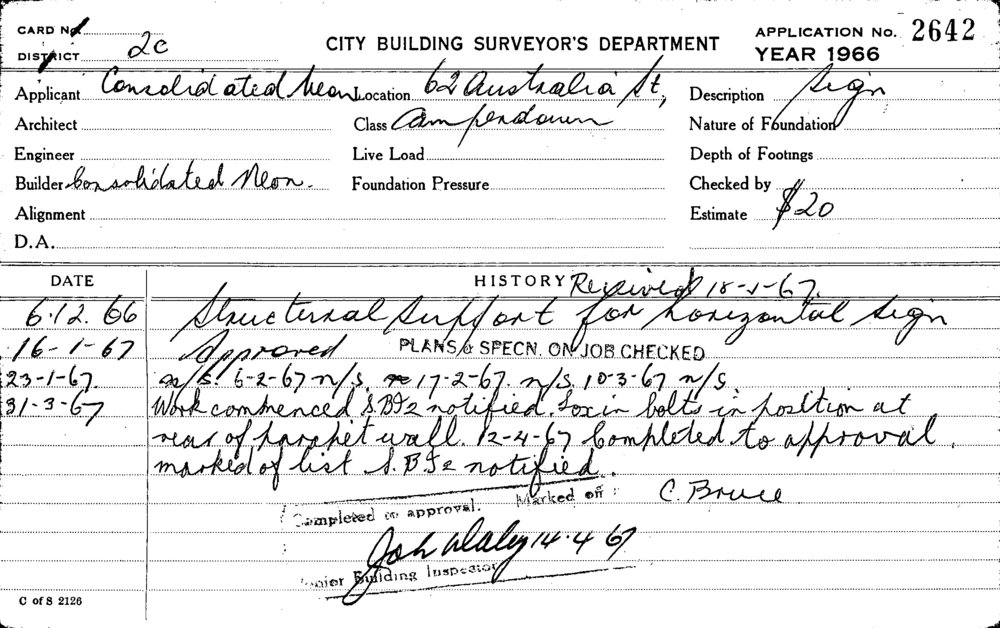 CARD No.
DISTRICT 2c
CITY BUILDING SURVEYOR'S DEPARTMENT
APPLICATION No. 2642
YEAR 1966
Applicant Consolidated Neon Location 62 Australia St, Description Sign
Architect Class Camperdown Nature of Foundation
Engineer Live Load Depth of Footings
Builder Consolidated Neon. Foundation Pressure Checked by
Alignment Estimate $20
D.A.
DATE HISTORY Received 18-1-67.
6.12.66 Structural support for horizontal sign
16-1-67 Approved PLANS & SPECN. ON JOB CHECKED
23-1-67. n/s. 6-2-67 n/s. 17-2-67. n/s. 10-3-67 n/s.
31-3-67 Work commenced notified. Loxin bolts in position at
rear of parapet wall. 12-4-67 Completed to approval.
marked of list notified.
Completed to approval. Marked off : C. Bruce
14.4.67
Senior Building Inspector
C of S 2126